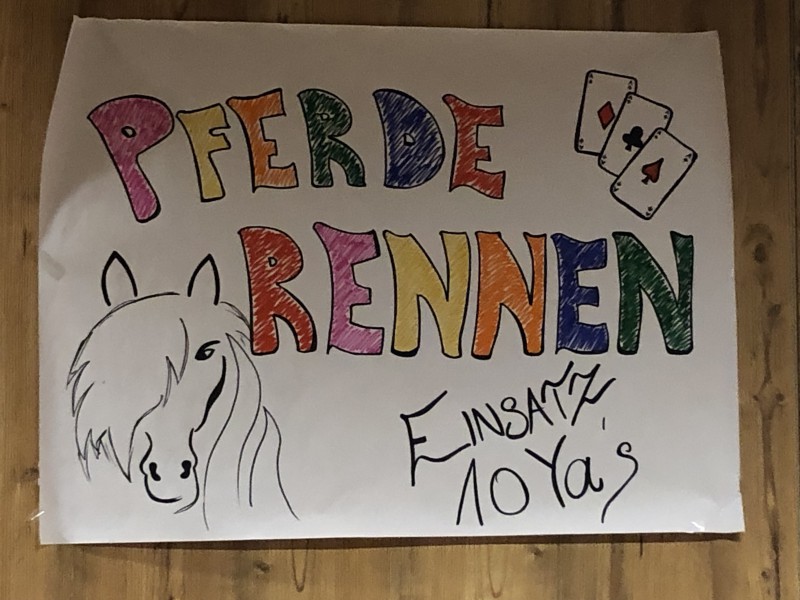 PFERDE
RENNEN
EINSATZ
10 Ya's